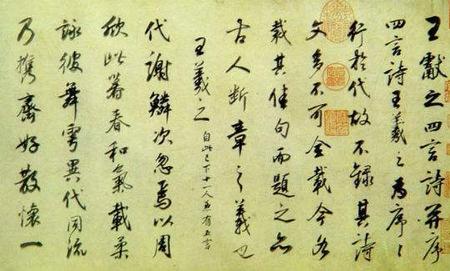 王獻之四言詩并序
四言詩王羲之為序〻
行於代故不錄其詩
文多不可全載今各
裁其佳句而題之亦
古人斷章之義也
王羲之 自此已下十一人並有五言
代謝鱗次忽焉以周
欣此暮春和氣載柔
詠彼舞雩異代同流
乃攜齊好散懷一